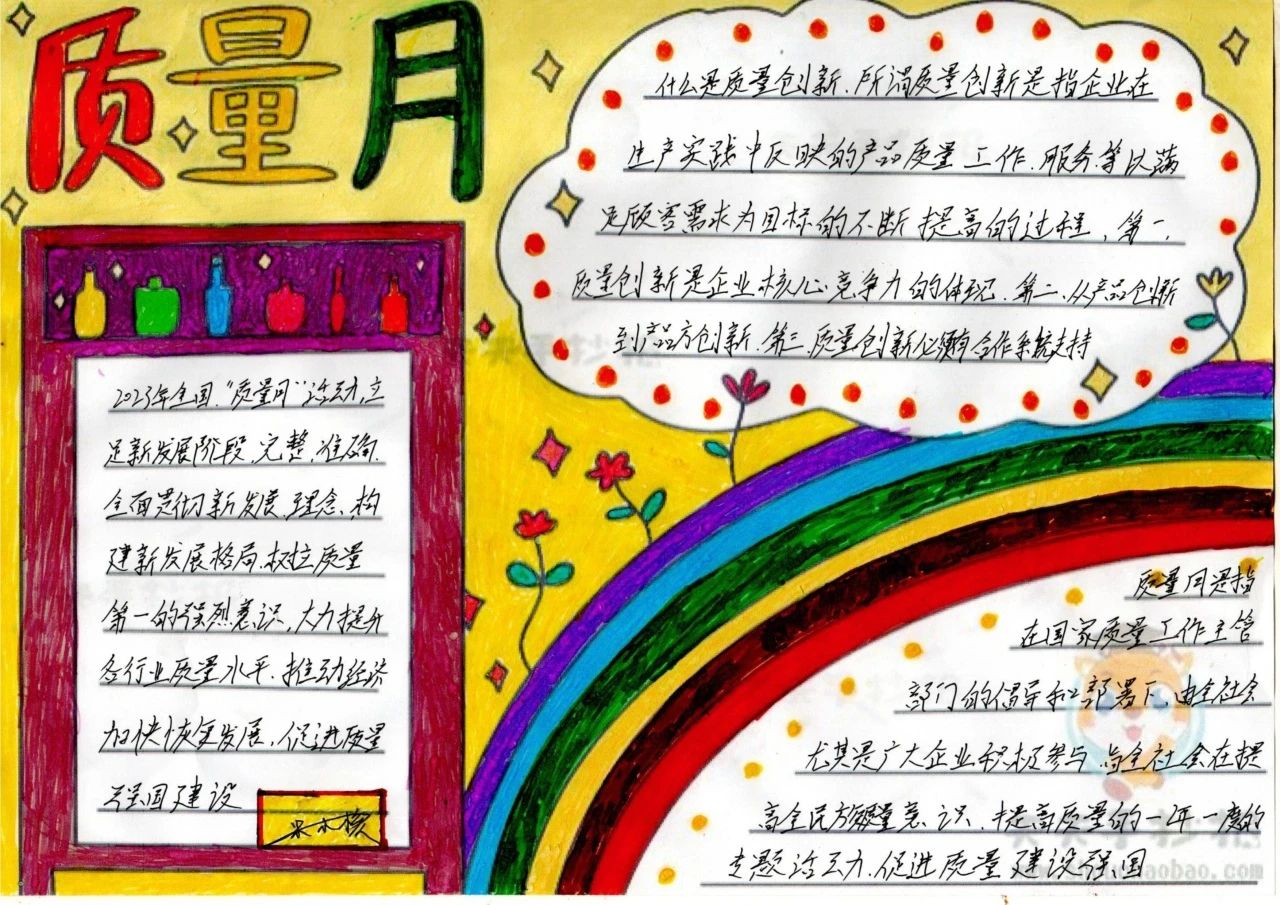 质量月
什么是质量创新、所谓质量创新是指企业在
生产实践中反映的产品质量工作、服务等以满
足顾客需求为目标的不断提高的过程、第一、
质量创新是企业核心竞争力的体现、第二、从产品创新
到产品方创新、第三、质量创新必须有合作系统支持
2023年全国"质量月"活动,立
足新发展阶段、完整、准确、
全面贯彻新发展理念、构
建新发展格局、树立质量
第一的强烈意识,大力提升
各行业质量水平、推动经济
加快恢复发展,促进质量
强国建设
质量月是指
在国家质量工作主管
部门的倡导和部署下、由全社会
尤其是广大企业积极参与、与全社会在提
高全民族质量意识、提高质量的一年一度的
专题活动、促进质量建设强国